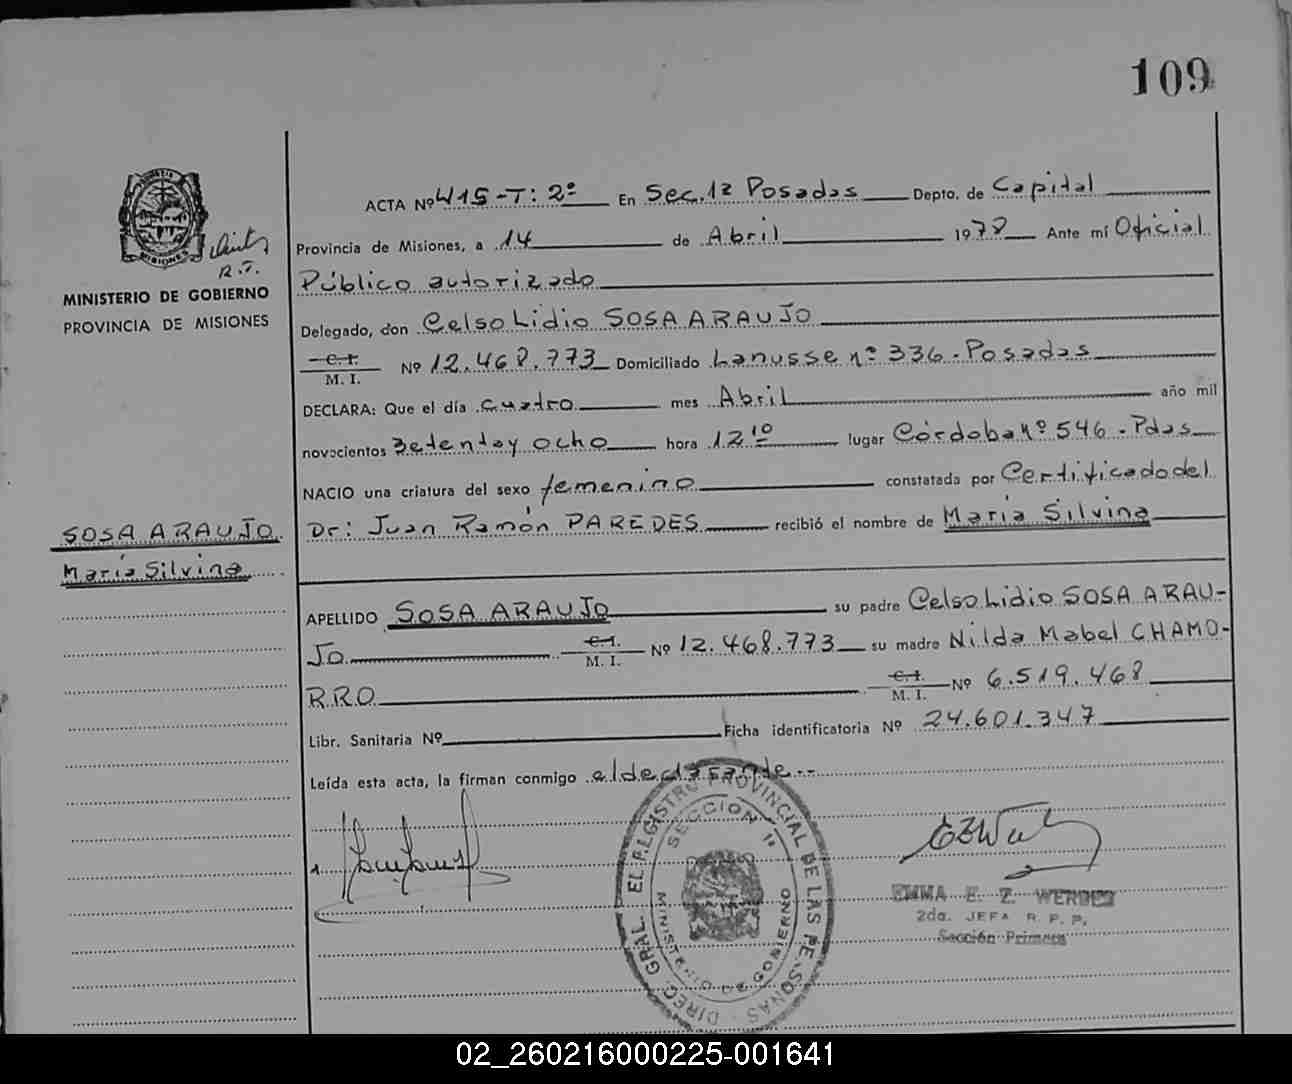 109
ACTA Nº 415-T: 2º En Sec. 1a Posadas Depto. de Capital
Provincia de Misiones, a 14 de Abril 1978 Ante mí Oficial
R.T.
Público autorizado
MINISTERIO DE GOBIERNO
PROVINCIA DE MISIONES
Delegado, don Celso Lidio SOSA ARAUJO
C. I.
M. I. Nº 12.468.773 Domiciliado Lanusse nº 336. Posadas
DECLARA: Que el día cuatro mes Abril año mil
novecientos Setenta y ocho hora 12 10 lugar Córdoba nº 546. Pdas
NACIO una criatura del sexo femenino constatada por Certificado del
Dr: Juan Ramón PAREDES recibió el nombre de María Silvina
SOSA ARAUJO
María Silvina
APELLIDO SOSA ARAUJO su padre Celso Lidio SOSA ARAU-
JO C. I.
M. I. Nº 12.468.773 su madre Nilda Mabel CHAMO-
RRO C. I.
M. I. Nº 6.519.468
Libr. Sanitaria Nº Ficha identificatoria Nº 24.601.347
Leída esta acta, la firman conmigo el declarante.--
DIREC. GRAL. EL REGISTRO PROVINCIAL DE LAS PERSONAS
SECCION 1a
MINISTERIO DE GOBIERNO
EMMA E. Z. WERDER
2da. JEFA R. P. P.
Sección Primera
02_260216000225-001641